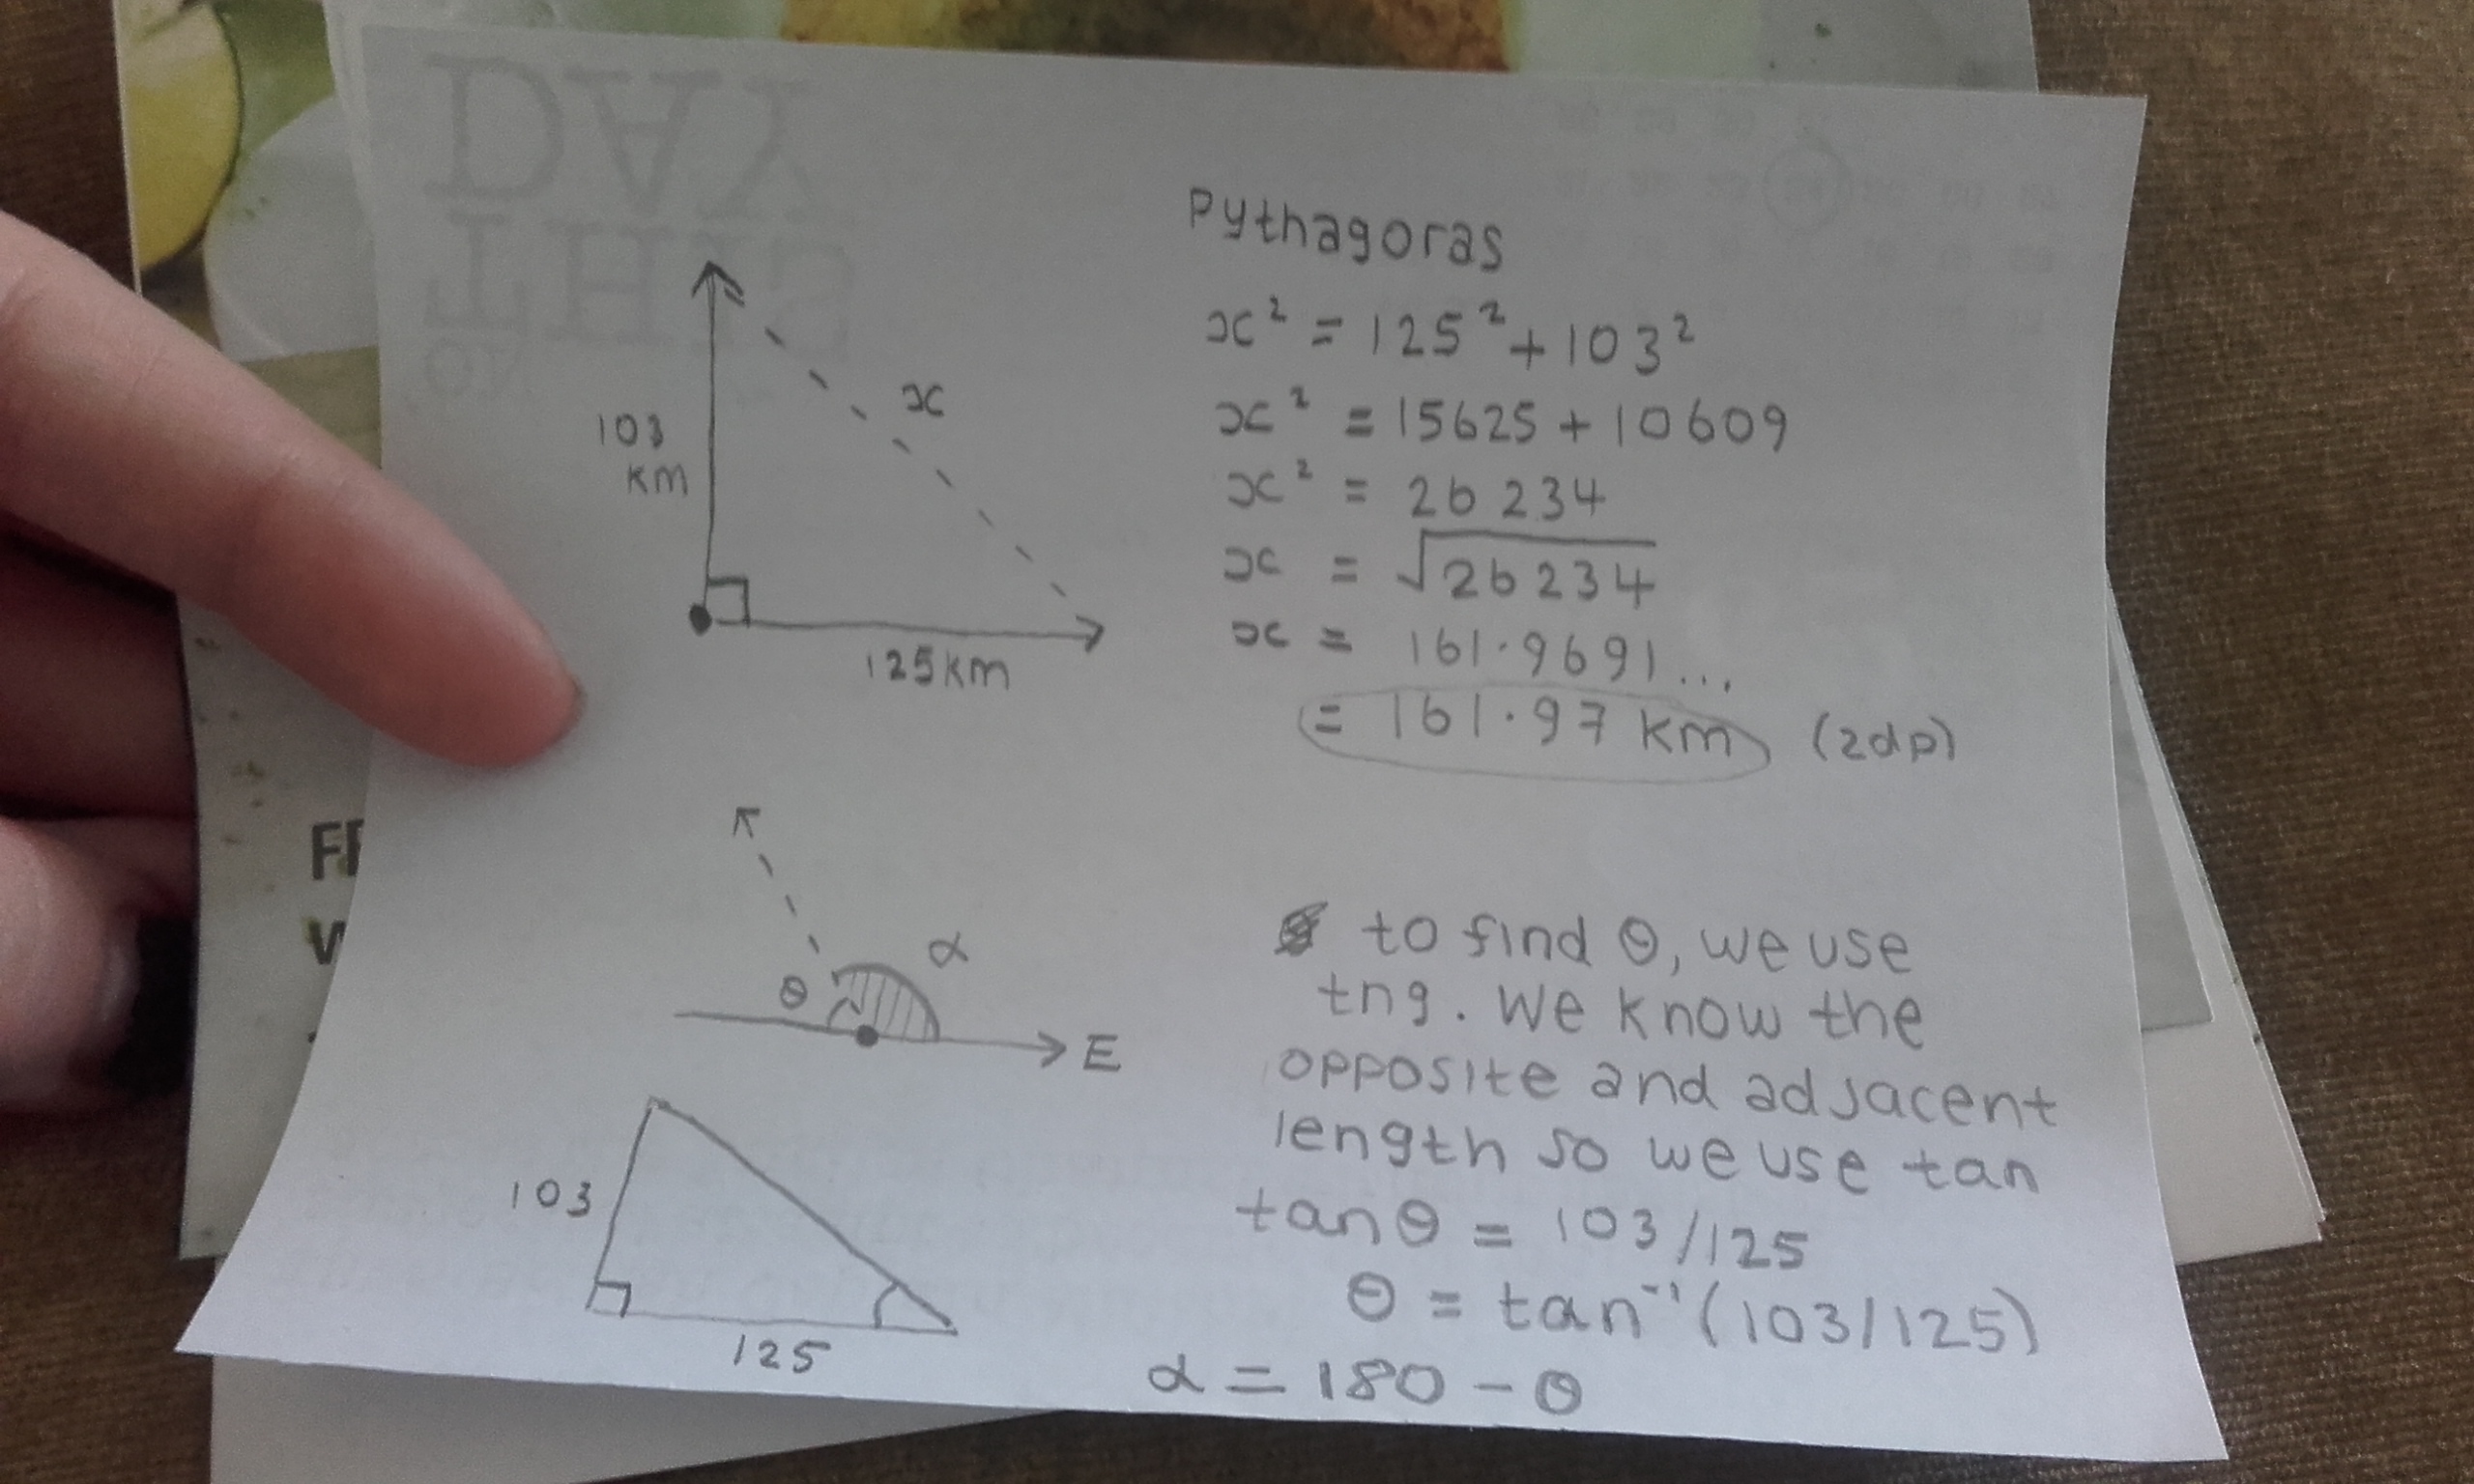 Pythagoras
x² = 125² + 103²
x² = 15625 + 10609
x² = 26 234
x = √26 234
x = 161.9691...
= 161.97 km (2dp)
103
km
x
125km
θ
α
E
to find θ, we use
tng. We know the
opposite and adjacent
length so we use tan
tanθ = 103/125
θ = tan⁻¹(103/125)
α = 180 - θ
103
125
DAY
THIS
ON